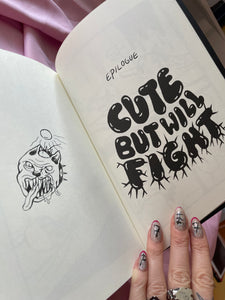 EPILOGUE
CUTE
BUT WILL
FIGHT